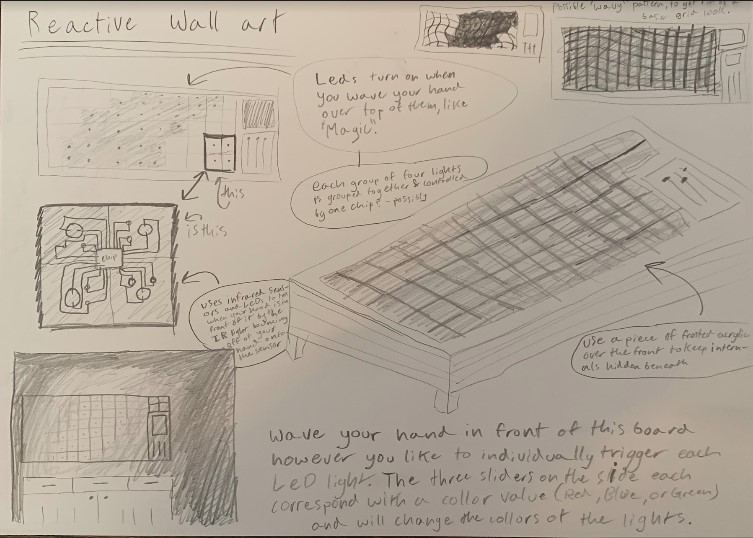 Reactive Wall art
Possible "wavy" pattern, to get rid of a
base grid wall.
Leds turn on when
you wave your hand
over top of them, like
"Magic".
each group of four lights
is grouped together & controlled
by one chip? - possibly
this
is this
chip
uses infrared sens-
ors and LEDs to tell
when your hand is in
front of it by the
IR light bouncing
off of your
hand onto
the sensor
use a piece of frosted acrylic
over the front to keep intern-
als hidden beneath
Wave your hand in front of this board
however you like to individually trigger each
LeD light. The three sliders on the side each
correspond with a collor value (Red, Blue, or Green)
and will change the collors of the lights.